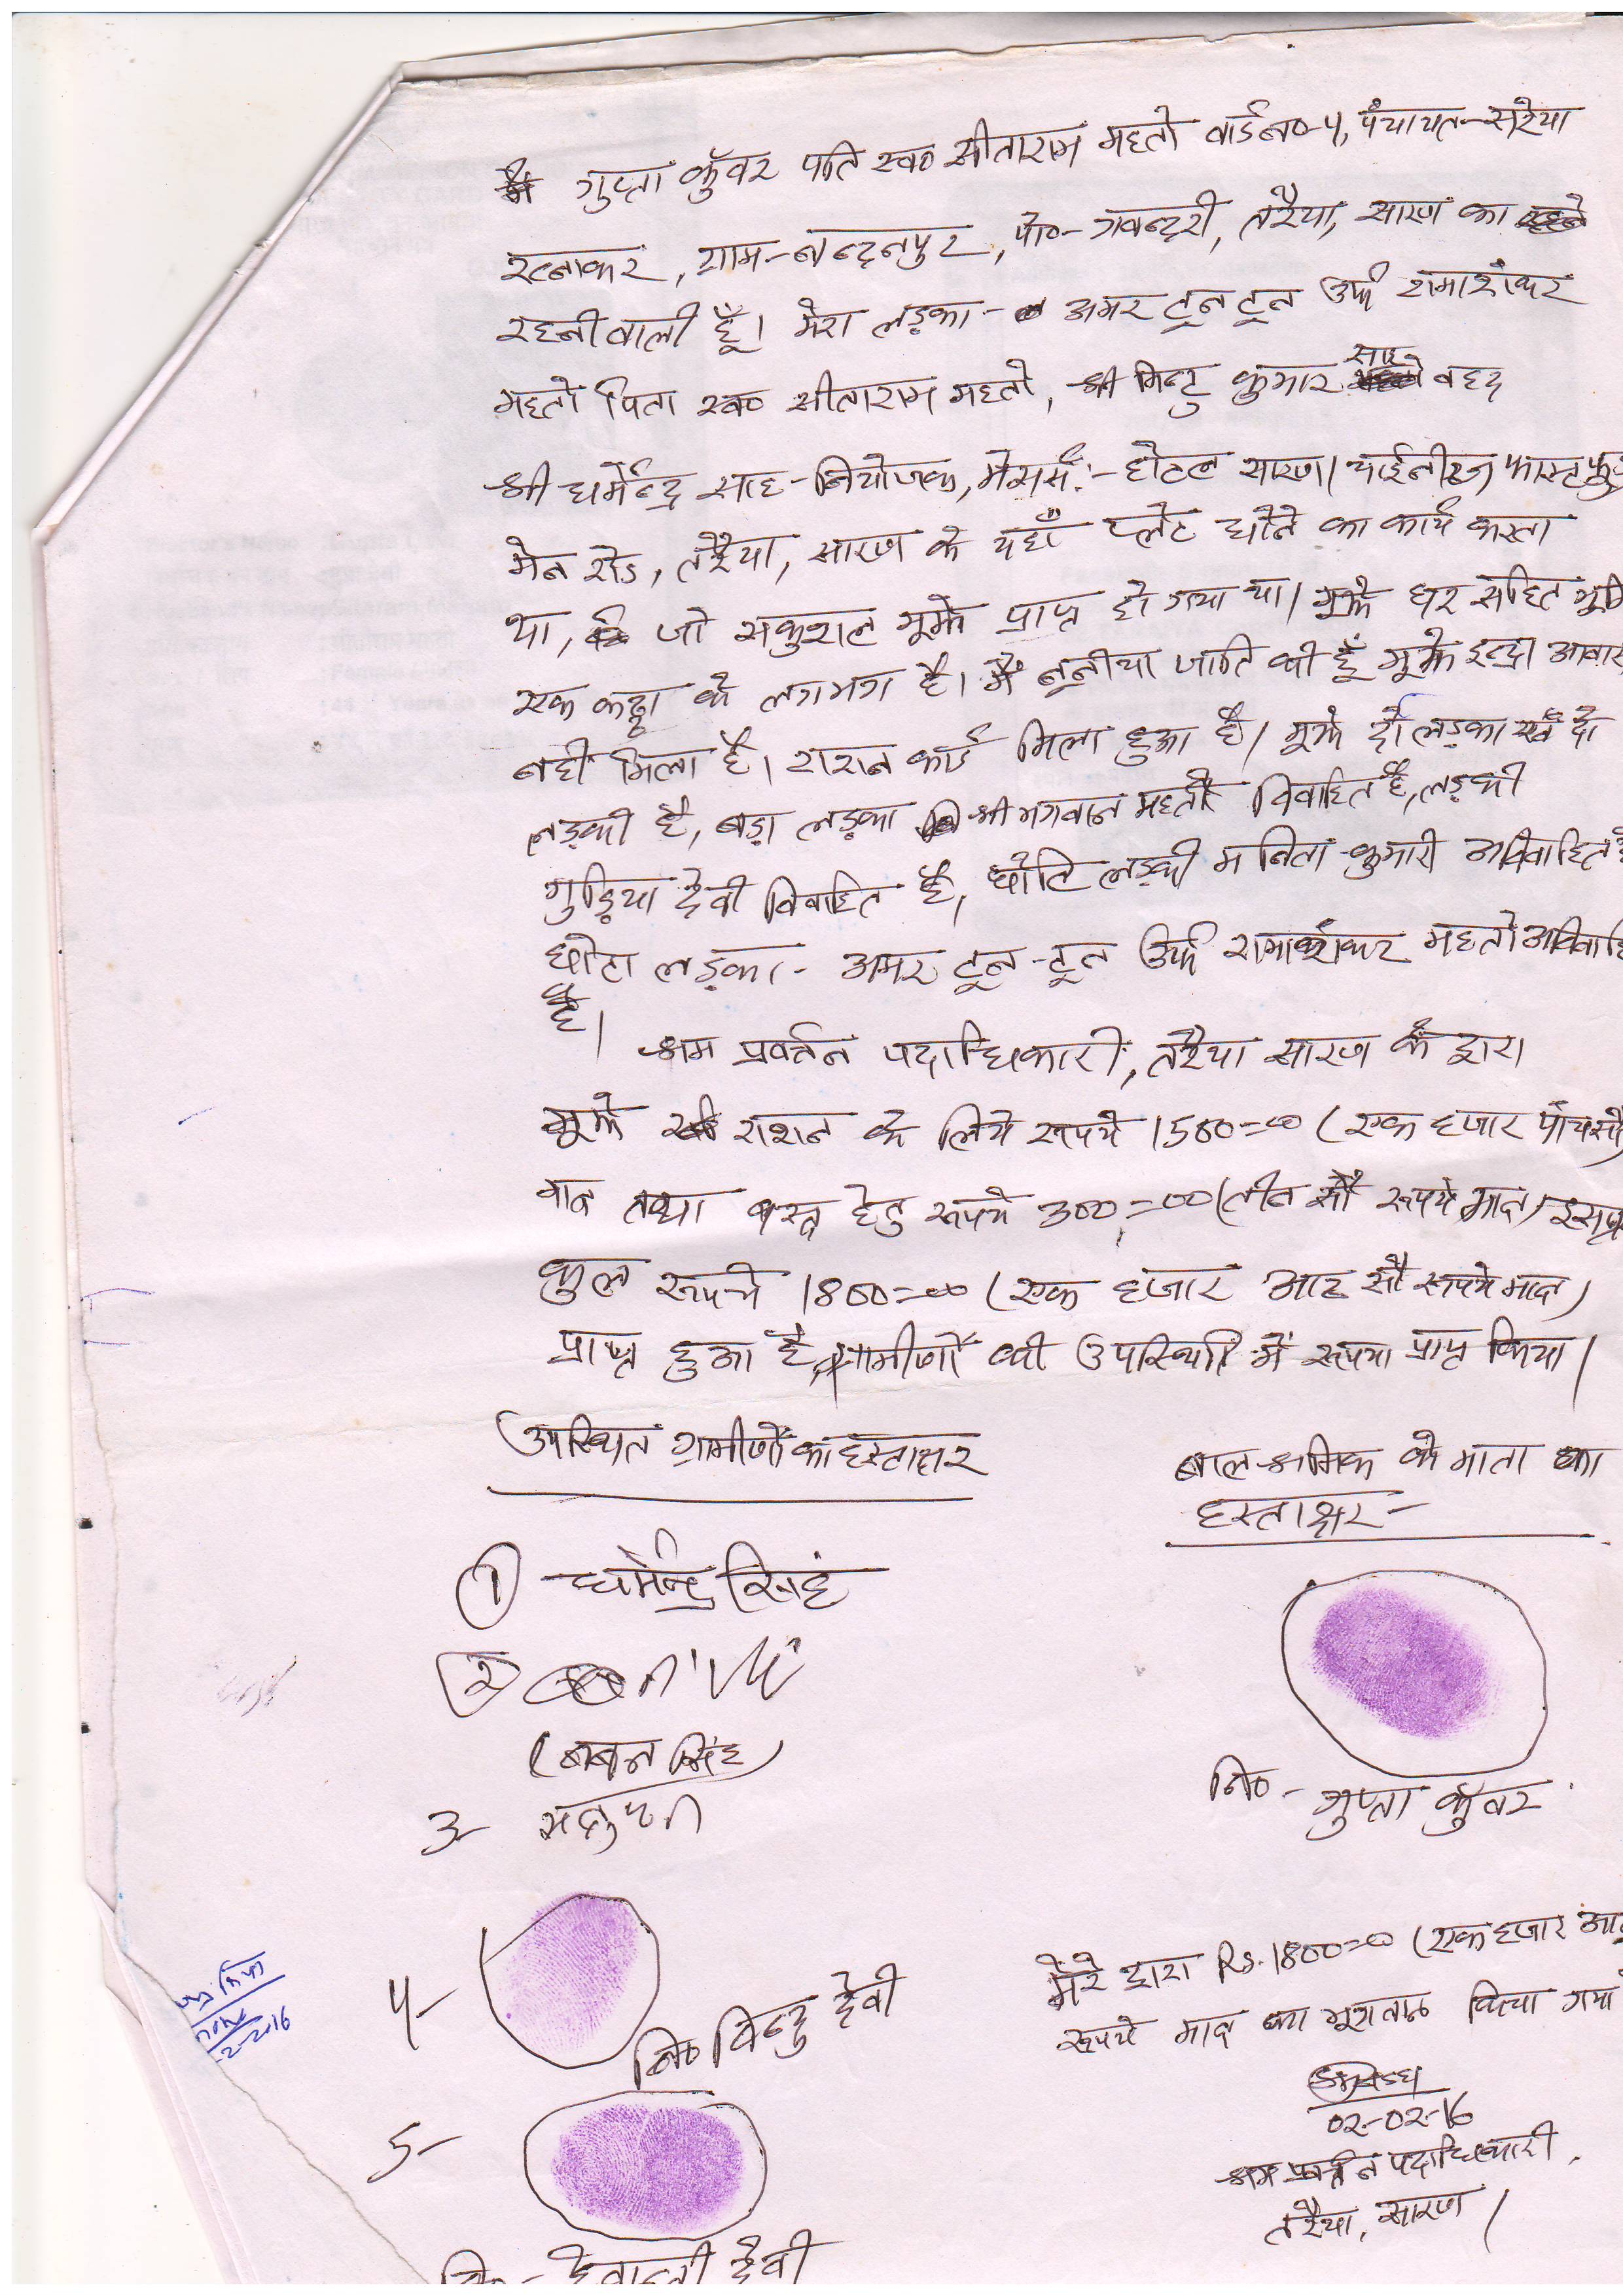 मैं गुप्ता कुँवर पति स्व० सीताराम महतो वार्ड न०-4, पंचायत-सरेया
रत्नाकर, ग्राम-नन्दनपुर, पो०-गवन्द्री, तरैया, सारण का
रहनीवाली हूँ। मेरा लड़का- अमर टून टून उर्फ रामाशंकर
महतो पिता स्व० सीताराम महतो, श्री मिन्टु कुमार साह वहद
श्री धर्मेन्द्र साह-नियोजक, मेसर्स:- होटल सारण। चाईनीज फास्ट फुड
मेन रोड, तरैया, सारण के यहाँ प्लेट धोने का कार्य करता
था, जो सकुशल मूझे प्राप्त हो गया था। मूझे घर सहित भूमि
एक कठ्ठा के लगभग है। मैं नूनीया जाति की हूँ मूझे इन्द्रा आवास
नही मिला है। राशन कार्ड मिला हुआ है। मूझे दो लड़का एवं दो
लड़की है, बड़ा लड़का श्री भगवान महतो विवाहित है, लड़की
गुड़िया देवी विवाहित है, छोटि लड़की मनिता कुमारी अविवाहित है
छोटा लड़का- अमर टून-टून उर्फ रामाशंकर महतो अविवाहि
है।
श्रम प्रवर्त्तन पदाधिकारी, तरैया सारण के द्वारा
मूझे राशन के लिये रूपये 1500=00 (एक हजार पाँच सौ)
मात्र तथा वस्त्र हेतु रूपये 300=00 (तीन सौ रूपये मात्र) इसप्र
कुल रूपये 1800=00 (एक हजार आठ सौ रूपये मात्र)
प्राप्त हुआ है, ग्रामीणों की उपस्थिति में रूपया प्राप्त किया।
उपस्थित ग्रामीणों का हस्ताक्षर
बाल-श्रमिक के माता का
हस्ताक्षर-
1 धर्मेन्द्र सिंह
2
(बबन सिंह)
3-
नि०- गुप्ता कुँवर
4-
नि० बिन्दु देवी
मेरे द्वारा Rs. 1800=00 (एक हजार आठ
रूपये मात्र का भूगतान किया गया
02-02-16
श्रम प्रवर्त्तन पदाधिकारी,
तरैया, सारण।
5-
नि०- देवान्ती देवी
2-2016